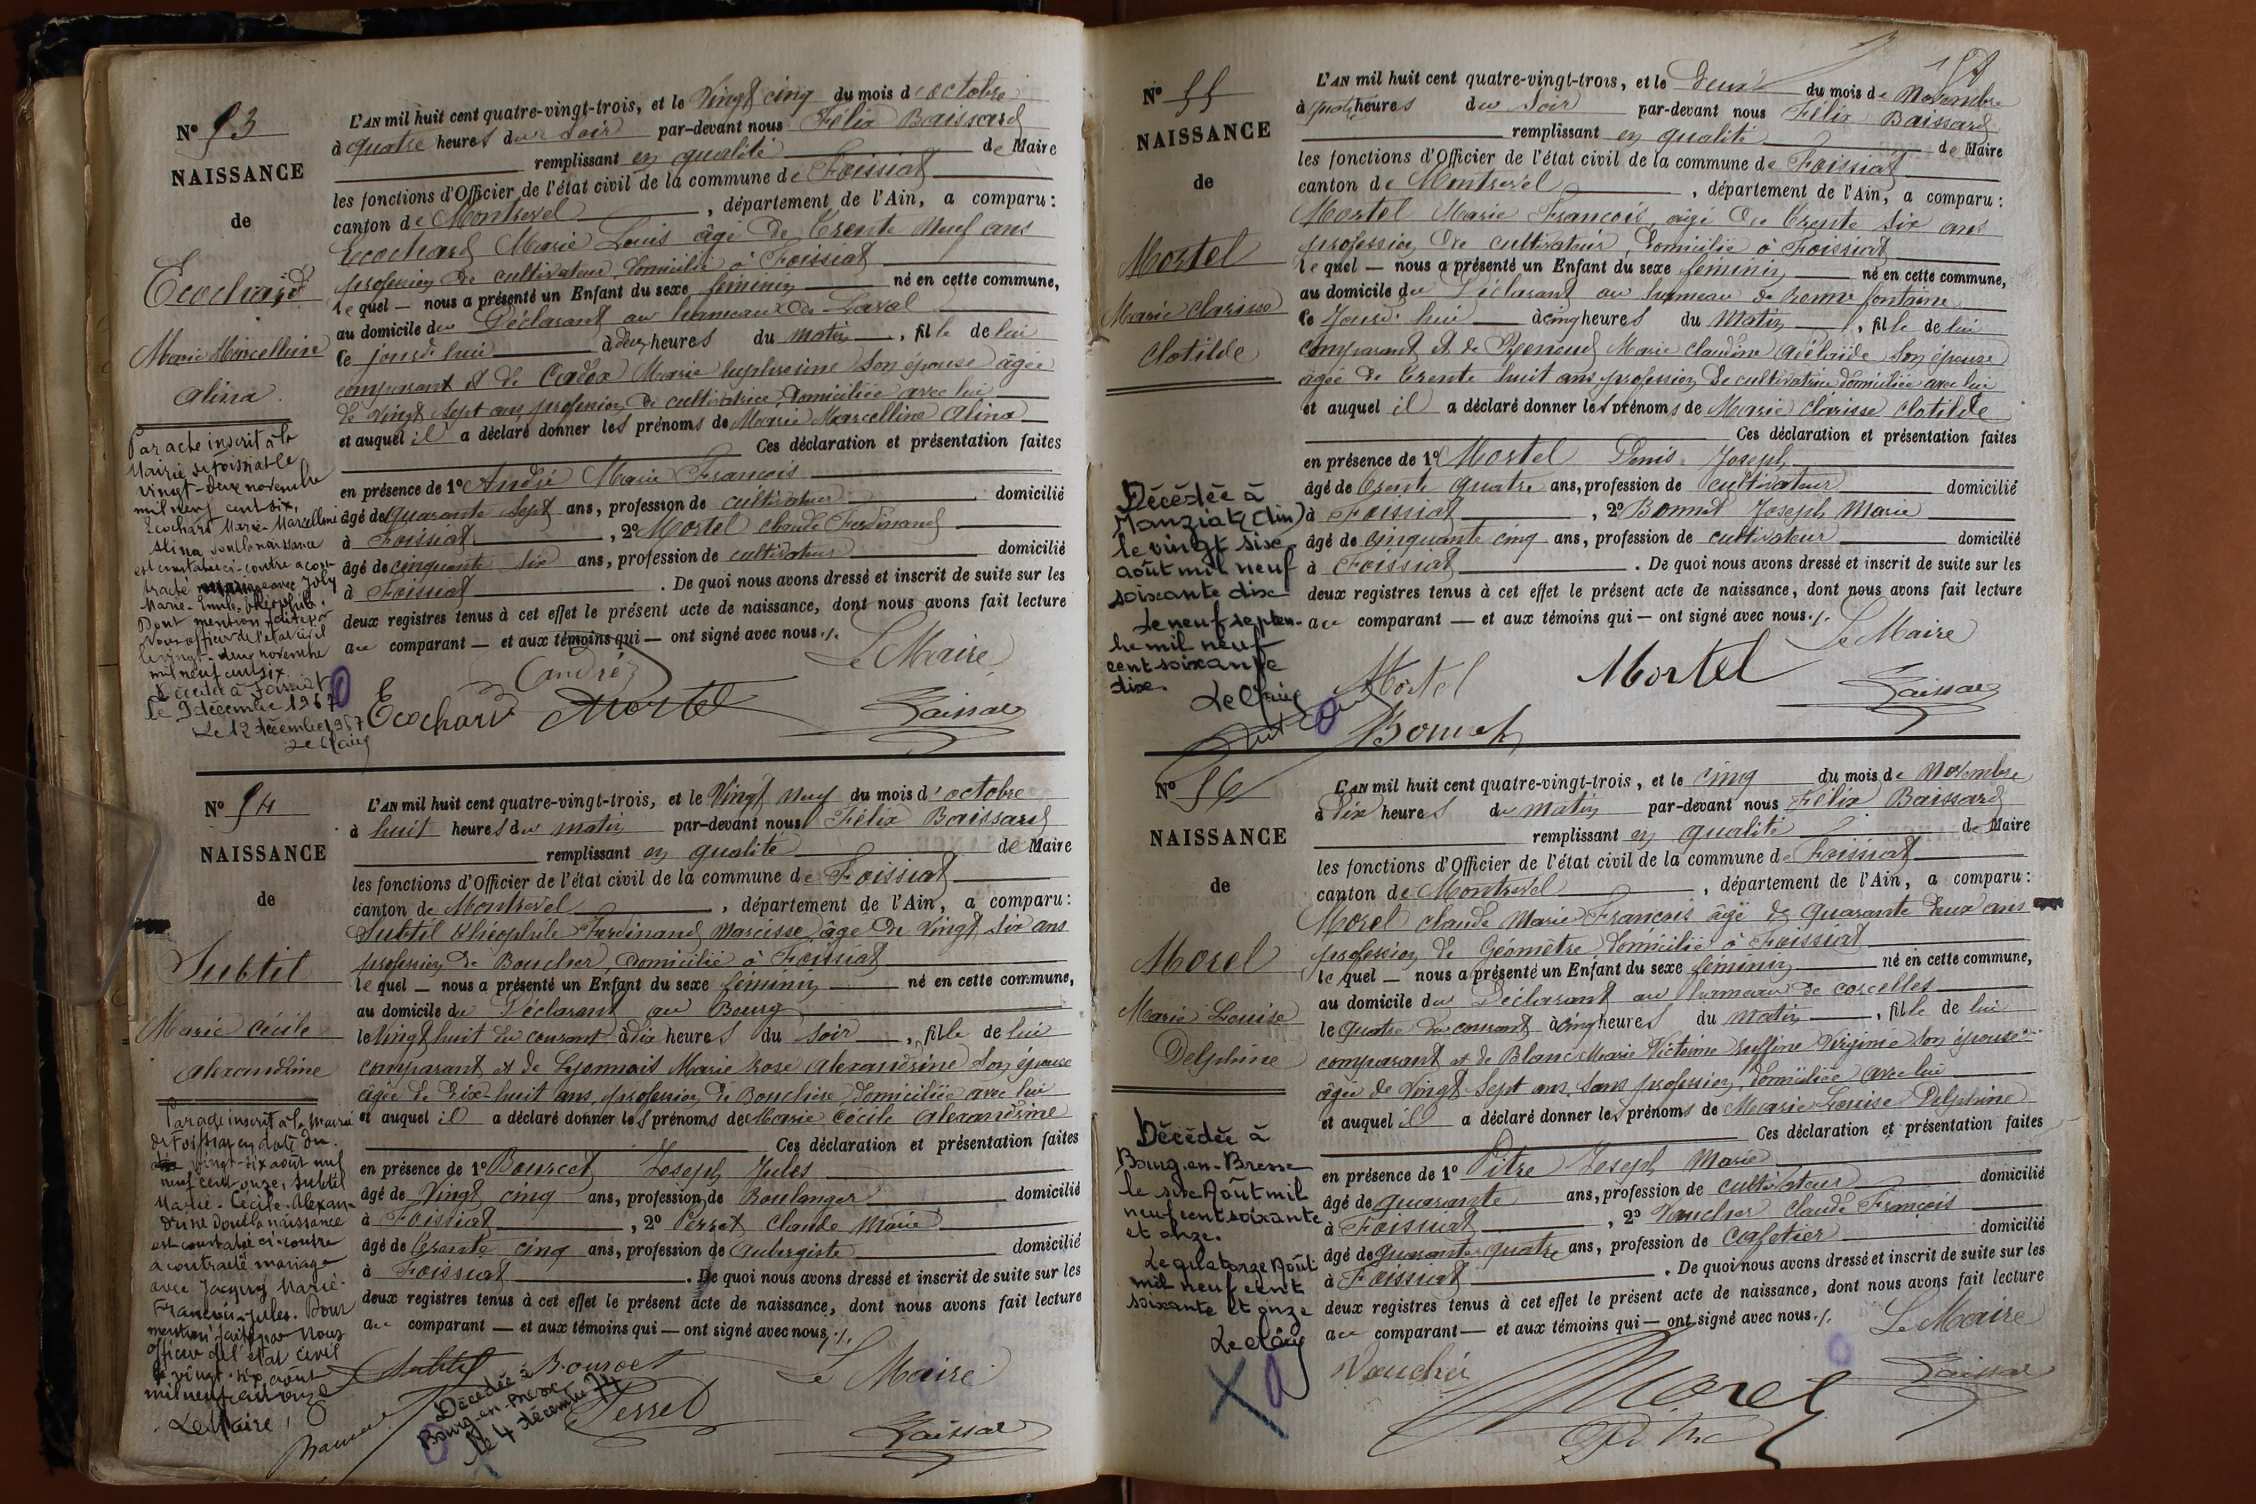 N° 53
NAISSANCE
de
Ecochard
Marie Marcelline
Alina
Par acte inscrit à la
Mairie de Foissiat le
vingt-deux novembre
mil neuf cent six,
Ecochard Marie-Marcelline
Alina dont la naissance
est constatée ci-contre a con
tracté mariage avec Joly
Marie-Emile-Théophile.
Dont mention faite par
Nous officier de l'état civil
le vingt-deux novembre
mil neuf cent six.
Décédée à Foissiat
le 9 décembre 1967
Le 12 décembre 1967
L'AN mil huit cent quatre-vingt-trois, et le Vingt cinq du mois d'octobre
à quatre heures du soir par-devant nous Félix Baissard
remplissant en qualité de Maire
les fonctions d'Officier de l'état civil de la commune de Foissiat
canton de Montrevel, département de l'Ain, a comparu:
Ecochard Marie Louis âgé de trente neuf ans
profession de cultivateur, domicilié à Foissiat
lequel — nous a présenté un Enfant du sexe féminin né en cette commune,
au domicile du Déclarant au hameau de Laval
ce jourd'hui à deux heures du matin, fille de lui
comparant et de Cadoz Marie Euphrosine son épouse âgée
de vingt sept ans, profession de cultivatrice, domiciliée avec lui
et auquel il a déclaré donner les prénoms de Marie Marcelline Alina
Ces déclaration et présentation faites
en présence de 1° André Marie François
âgé de quarante sept ans, profession de cultivateur domicilié
à Foissiat, 2° Mortel Claude Ferdinand
âgé de cinquante six ans, profession de cultivateur domicilié
à Foissiat. De quoi nous avons dressé et inscrit de suite sur les
deux registres tenus à cet effet le présent acte de naissance, dont nous avons fait lecture
au comparant — et aux témoins qui — ont signé avec nous ./.
André Le Maire
Ecochard Mortel Baissard
N° 54
NAISSANCE
de
Subtil
Marie Cécile
Alexandrine
Par acte inscrit à la Mairie
de Foissiat en date du
vingt-six août mil
neuf cent onze, Subtil
Marie-Cécile-Alexan-
drine dont la naissance
est constatée ci-contre
a contracté mariage
avec Jacquey Marie-
François-Jules. Dont
mention faite par Nous
officier de l'état civil
le vingt-six août
mil neuf cent onze
Le Maire,
L'AN mil huit cent quatre-vingt-trois, et le Vingt neuf du mois d'octobre
à huit heures du matin par-devant nous Félix Baissard
remplissant en qualité de Maire
les fonctions d'Officier de l'état civil de la commune de Foissiat
canton de Montrevel, département de l'Ain, a comparu:
Subtil Théophile Ferdinand Narcisse, âgé de vingt six ans
profession de Boucher, domicilié à Foissiat
lequel — nous a présenté un Enfant du sexe féminin né en cette commune,
au domicile du Déclarant au Bourg
le vingt huit du courant à dix heures du soir, fille de lui
comparant et de Lyonnais Marie Rose Alexandrine son épouse
âgée de dix-huit ans, profession de Bouchère domiciliée avec lui
et auquel il a déclaré donner les prénoms de Marie Cécile Alexandrine
Ces déclaration et présentation faites
en présence de 1° Bourcet Joseph Jules
âgé de Vingt cinq ans, profession de Boulanger domicilié
à Foissiat, 2° Perret Claude Marie
âgé de trente cinq ans, profession de Aubergiste domicilié
à Foissiat. De quoi nous avons dressé et inscrit de suite sur les
deux registres tenus à cet effet le présent acte de naissance, dont nous avons fait lecture
au comparant — et aux témoins qui — ont signé avec nous ./.
Subtil Bourcet Le Maire
Décédée à
Bourg-en-Bresse
le 4 décembre 74
Perret
Baissard
N° 55
NAISSANCE
de
Mortel
Marie Clarisse
Clotilde
Décédée à
Manziat (Ain)
le vingt six
août mil neuf
soixante dix
Le neuf septem-
bre mil neuf
cent soixante
dix.
L'AN mil huit cent quatre-vingt-trois, et le Deux du mois de Novembre
à quatre heures du soir par-devant nous Félix Baissard
remplissant en qualité de Maire
les fonctions d'Officier de l'état civil de la commune de Foissiat
canton de Montrevel, département de l'Ain, a comparu:
Mortel Marie François âgé de trente six ans
profession de cultivateur domicilié à Foissiat
lequel — nous a présenté un Enfant du sexe féminin né en cette commune,
au domicile du Déclarant au hameau de bonne fontaine
ce jourd'hui à cinq heures du matin, fille de lui
comparant et de Renoud Marie Claudine Adélaïde son épouse
âgée de trente huit ans, profession de cultivatrice domiciliée avec lui
et auquel il a déclaré donner les prénoms de Marie Clarisse Clotilde
Ces déclaration et présentation faites
en présence de 1° Mortel Denis Joseph
âgé de trente quatre ans, profession de cultivateur domicilié
à Foissiat, 2° Bonnet Joseph Marie
âgé de cinquante cinq ans, profession de cultivateur domicilié
à Foissiat. De quoi nous avons dressé et inscrit de suite sur les
deux registres tenus à cet effet le présent acte de naissance, dont nous avons fait lecture
au comparant — et aux témoins qui — ont signé avec nous ./.
Le Maire
Mortel Mortel Baissard
Bonnet
N° 56
NAISSANCE
de
Morel
Marie Louise
Delphine
Décédée à
Bourg-en-Bresse
le six Août mil
neuf cent soixante
et onze.
Le quatorze Août
mil neuf cent
soixante et onze
L'AN mil huit cent quatre-vingt-trois, et le cinq du mois de Novembre
à dix heures du matin par-devant nous Félix Baissard
remplissant en qualité de Maire
les fonctions d'Officier de l'état civil de la commune de Foissiat
canton de Montrevel, département de l'Ain, a comparu:
Morel Claude Marie François âgé de quarante deux ans
profession de Géomètre domicilié à Foissiat
lequel — nous a présenté un Enfant du sexe féminin né en cette commune,
au domicile du Déclarant au hameau de corcelles
le quatre du courant à cinq heures du matin, fille de lui
comparant et de Blanc Marie Victorine Ruffine Virginie son épouse
âgée de vingt sept ans, sans profession, domiciliée avec lui
et auquel il a déclaré donner les prénoms de Marie Louise Delphine
Ces déclaration et présentation faites
en présence de 1° Pitre Joseph Marie
âgé de quarante ans, profession de cultivateur domicilié
à Foissiat, 2° Vaucher Claude François
âgé de quarante quatre ans, profession de cafetier domicilié
à Foissiat. De quoi nous avons dressé et inscrit de suite sur les
deux registres tenus à cet effet le présent acte de naissance, dont nous avons fait lecture
au comparant — et aux témoins qui — ont signé avec nous ./.
Le Maire
Vaucher Morel Baissard
Pitre